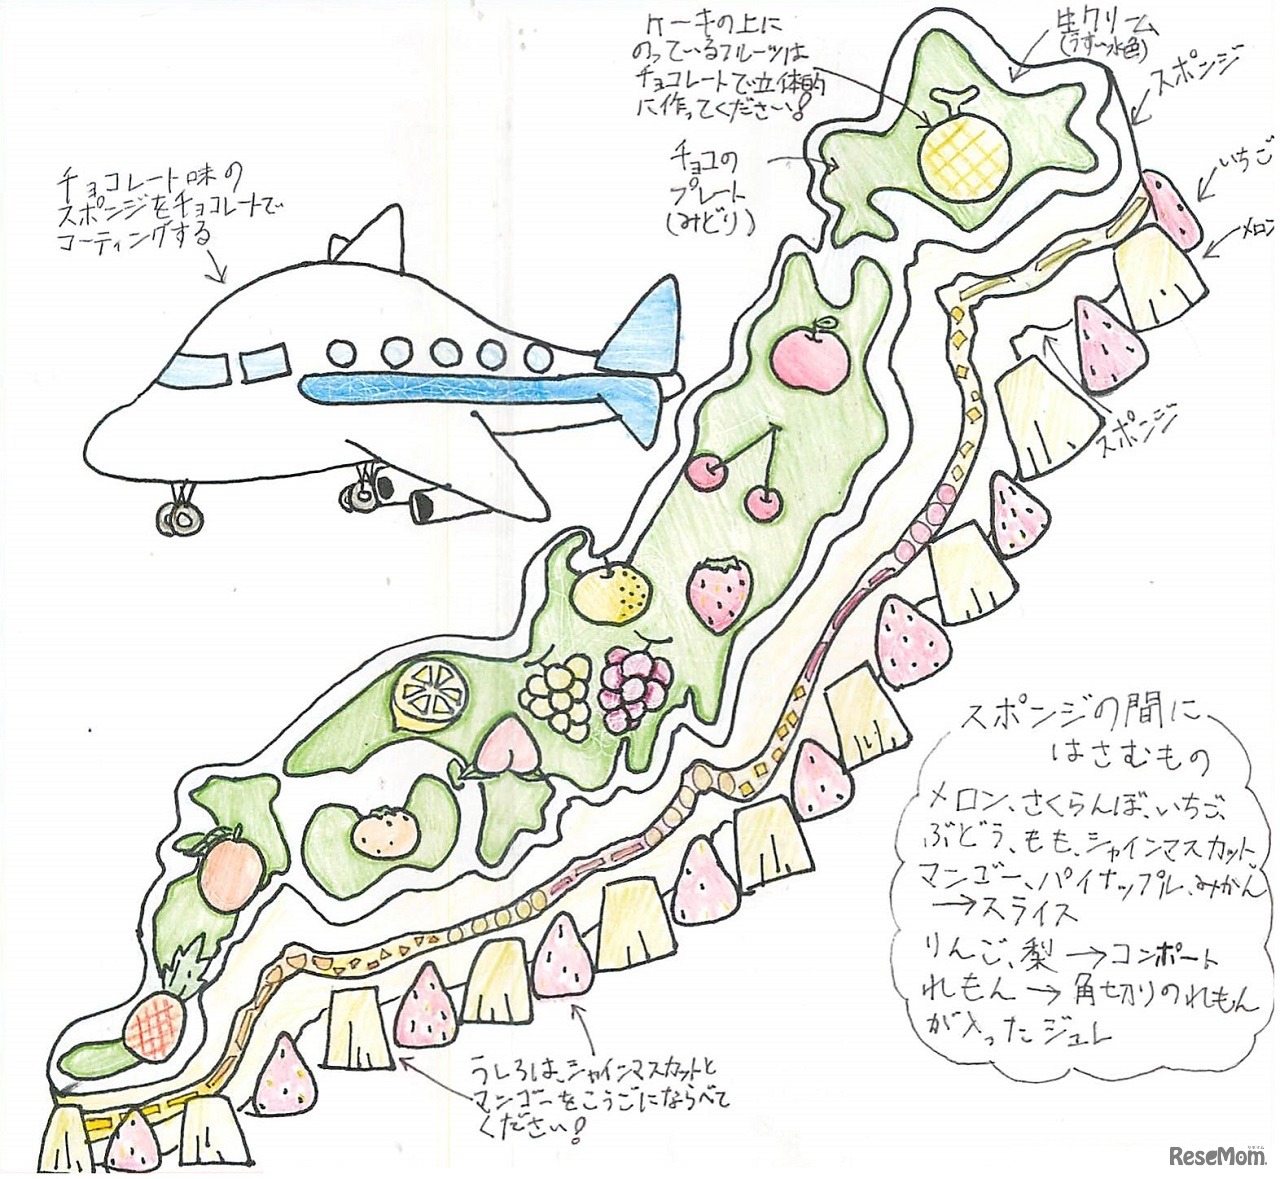 ケーキの上に
のっているフルーツは
チョコレートで立体的
に作ってください!
生クリーム
(うすい水色)
スポンジ
いちご
メロン
チョコの
プレート
(みどり)
チョコレート味の
スポンジをチョコレートで
コーティングする
スポンジ
スポンジの間に
はさむもの
メロン、さくらんぼ、いちご、
ぶどう、もも、シャインマスカット
マンゴー、パイナップル、みかん
→スライス
りんご、梨→コンポート
れもん→角切りのれもん
が入ったジュレ
うしろは、シャインマスカットと
マンゴーをこうごにならべて
ください!
ReseMom